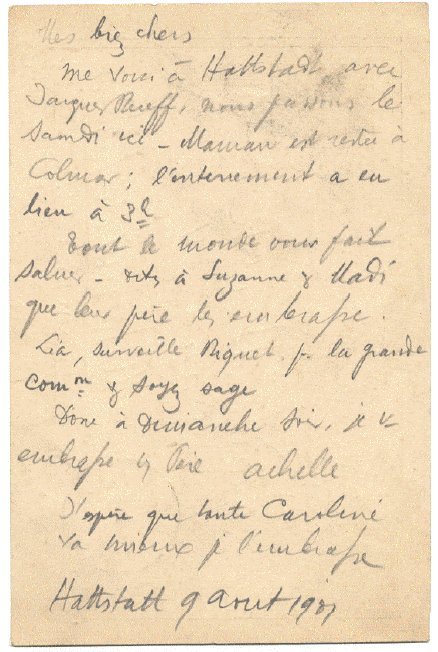 Mes biez chers
me voici à Hattstadt avec
Jacques Rueff, nous passons le
Samedi ici - Maman est restée à
Colmar; l'enterrement a eu
lieu à 3h
Tout le monde vous fait
saluer - dites à Suzanne & Madi
que leur père les embrasse.
Lia, surveille Riquet p. la grande
comm^on & soyez sage
Donc à Dimanche soir, je v
embrasse Père achille
J'espère que tante Caroline
va mieux je l'embrasse
Hattstatt 9 aout